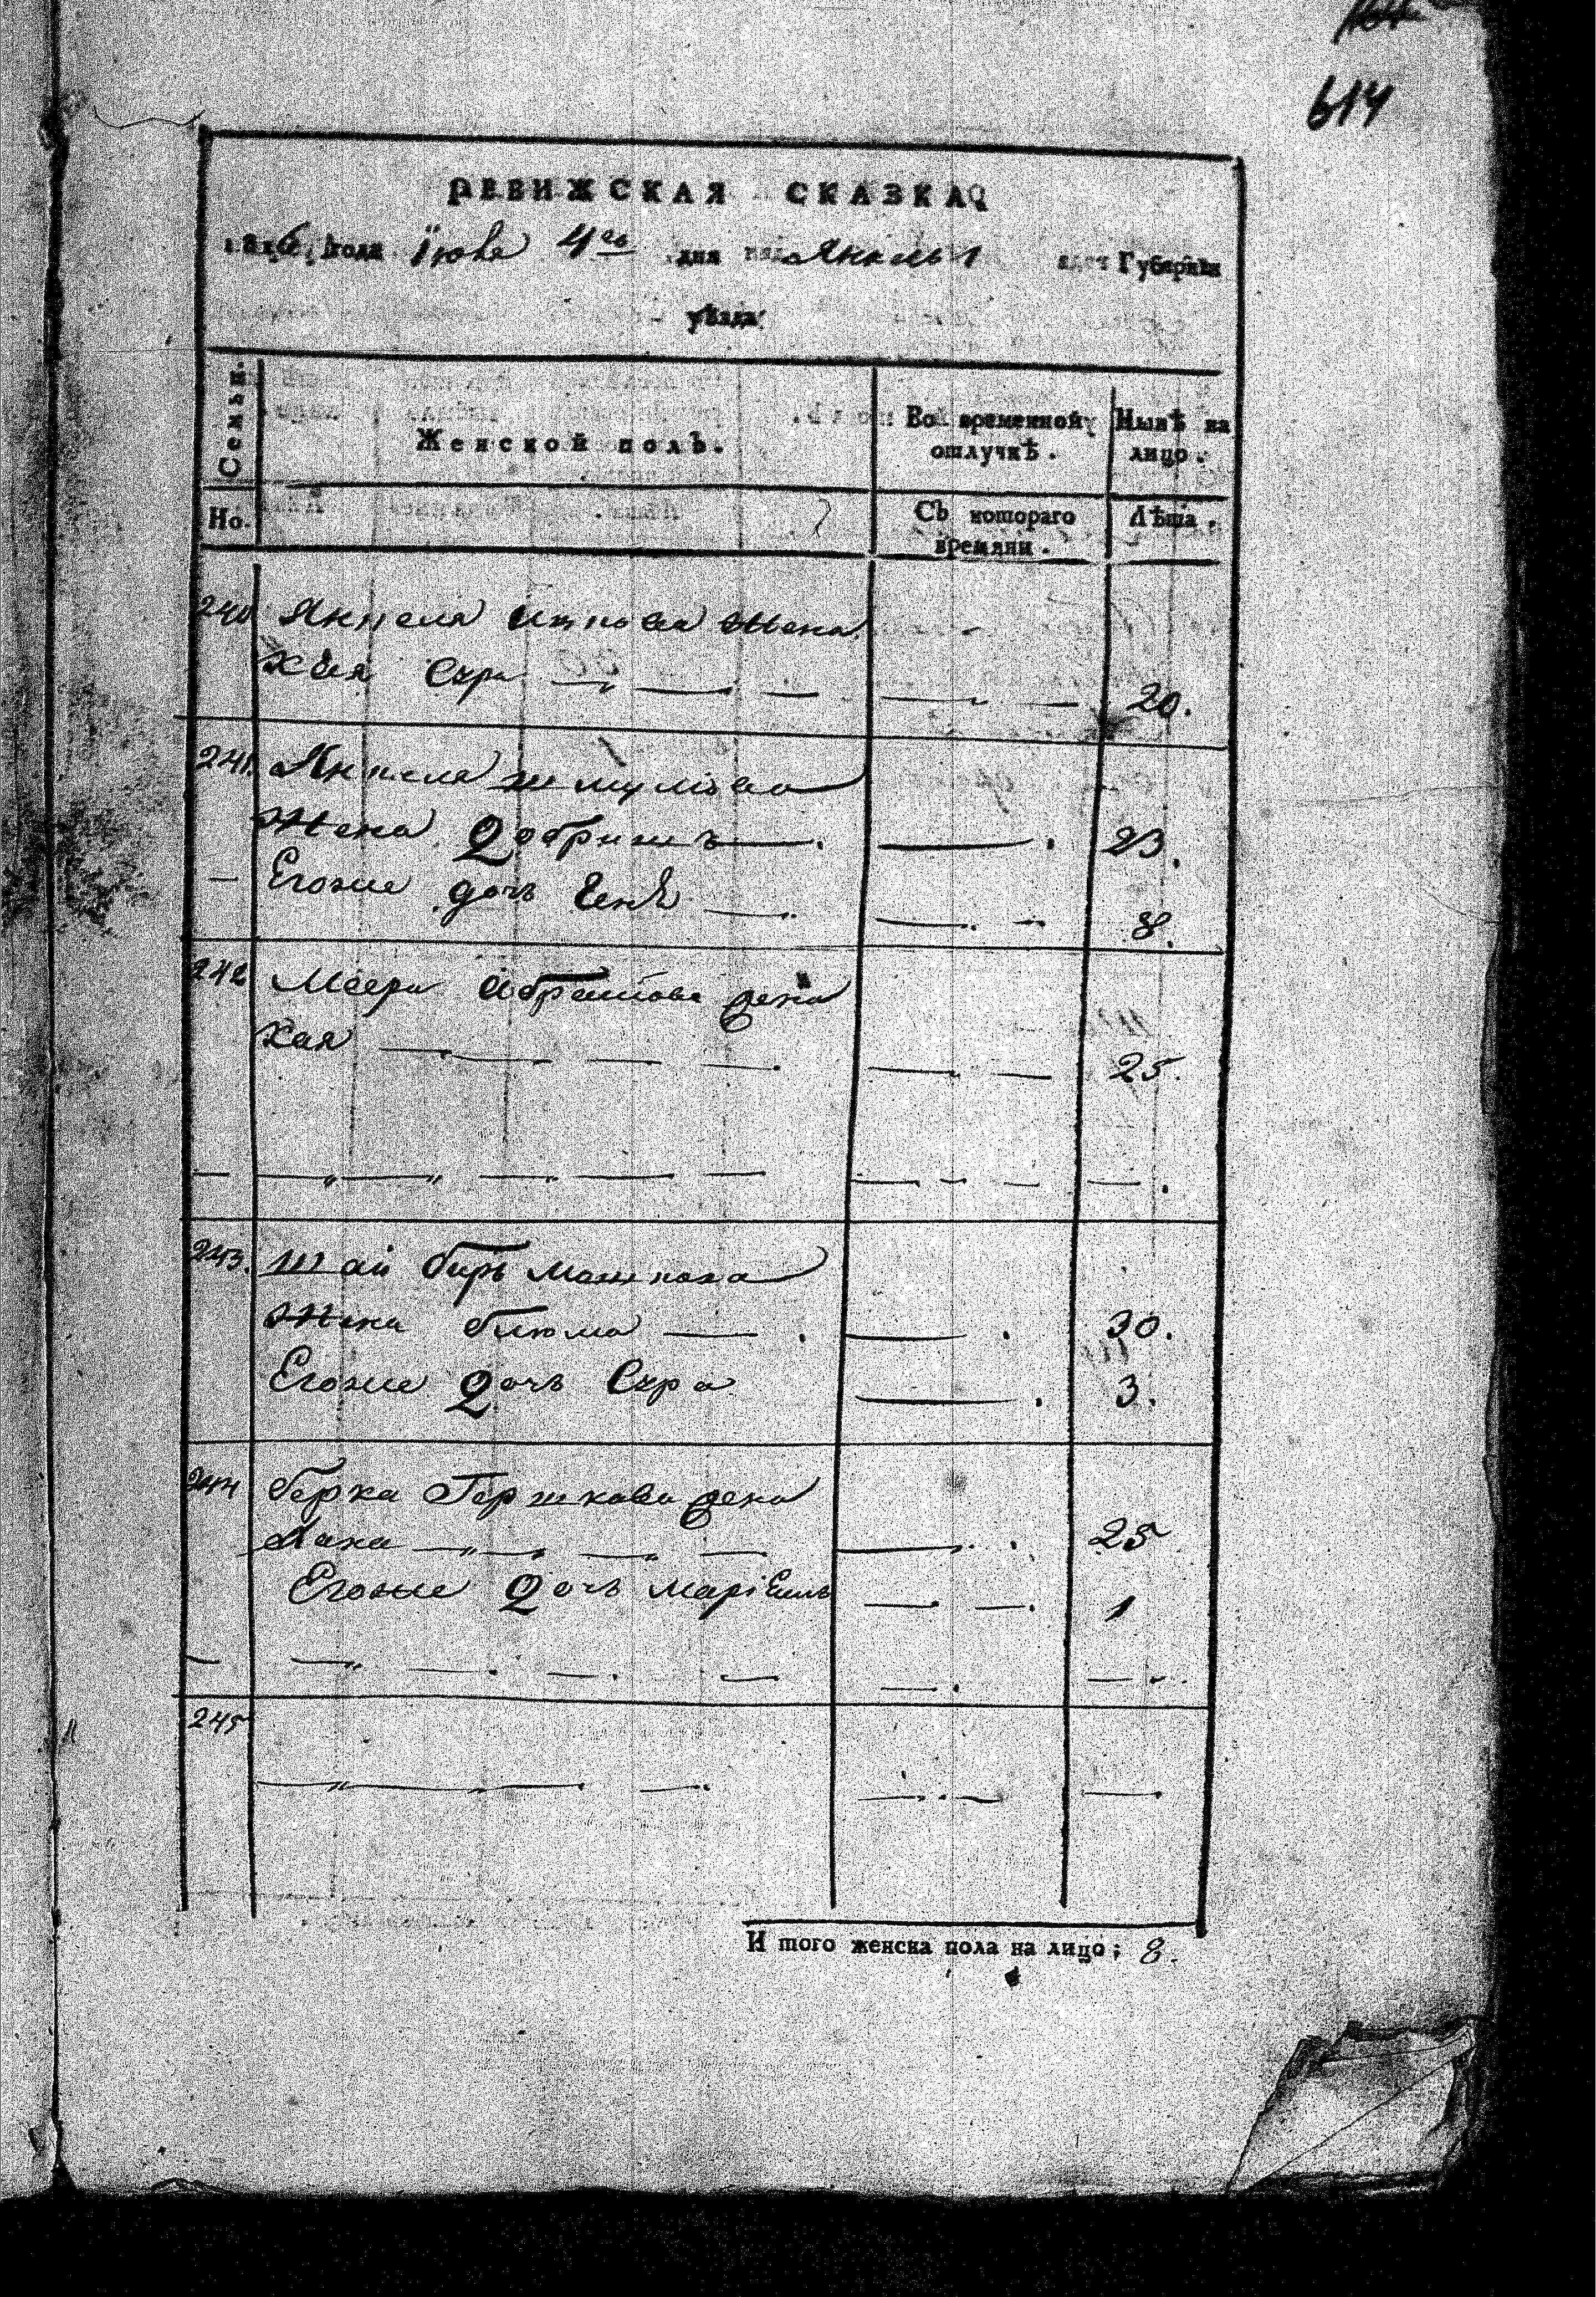 614
РЕВИЖСКАЯ СКАЗКА
года Іюня 4го дня Губерніи
уѣзда
Семьи.
Женской полъ.
Во временной отлучкѣ.
Нынѣ на лицо.
Но.
Съ котораго времяни.
Лѣта.
240 Янкеля Ицкова Жена
Хая Сура 20.
241. Янкеля Шмулова
Жена Добришъ 23.
Егоже дочь 8.
242 Меера Абрамова жена
Хая 25.
243. Шай Биръ Машкова
Жена Блюма 30.
Егоже Дочь Сура 3.
244 Берка Гершкова жена
Лака 25
Егоже Дочь 1
245
И того женска пола на лицо; 8.